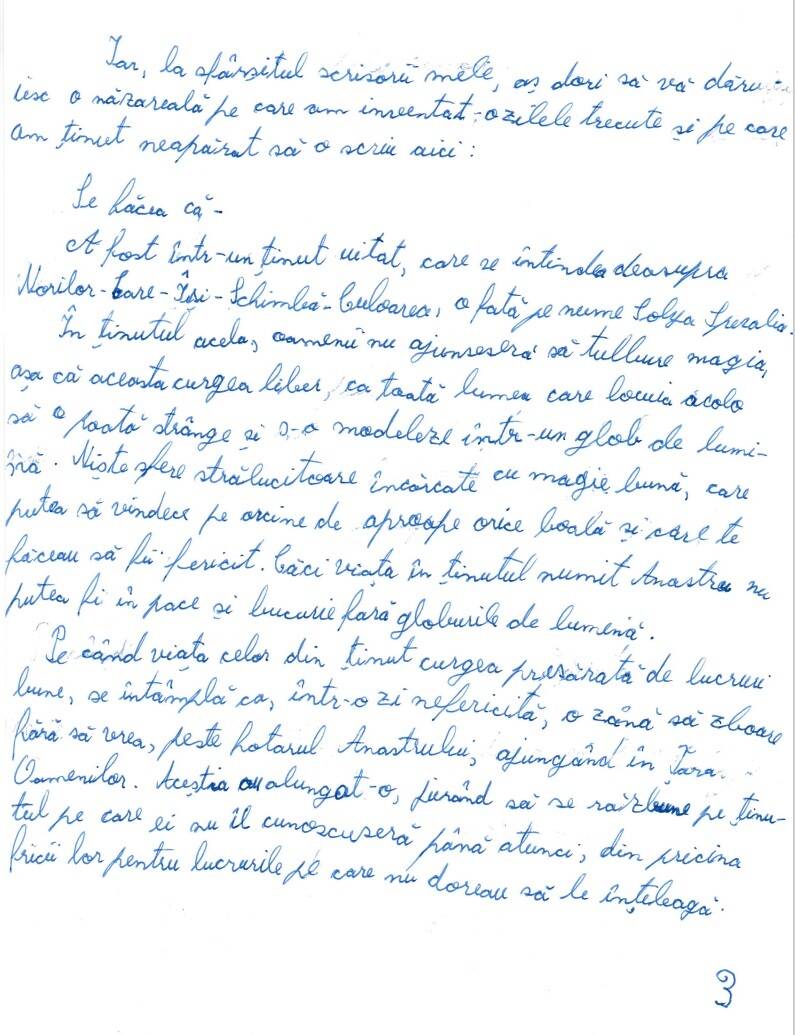 Iar, la sfârșitul scrisorii mele, aș dori să vă dăru-
iesc o năzareală pe care am inventat-o zilele trecute și pe care
am ținut neapărat să o scriu aici:
Se făcea că-
A fost într-un ținut uitat, care se întindea deasupra
Norilor-Care-Își-Schimbă-Culoarea, o fată pe nume
În ținutul acela, oamenii nu ajunseseră să tulbure magia,
așa că aceasta curgea liber, ca toată lumea care locuia acolo
să o poată strânge și s-o modeleze într-un glob de lumi-
nă. Niște sfere strălucitoare încărcate cu magie bună, care
putea să vindece pe oricine de aproape orice boală și care te
făceau să fii fericit. Căci viața în ținutul numit Anastru nu
putea fi în pace și bucurie fără globurile de lumină.
Pe când viața celor din ținut curgea presărată de lucruri
bune, se întâmplă ca, într-o zi nefericită, o zână să zboare
fără să vrea, peste hotarul Anastrului, ajungând în Țara
Oamenilor. Aceștia au alungat-o, jurând să se răzbune pe ținu-
tul pe care ei nu îl cunoscuseră până atunci, din pricina
fricii lor pentru lucrurile pe care nu doreau să le înțeleagă.
3